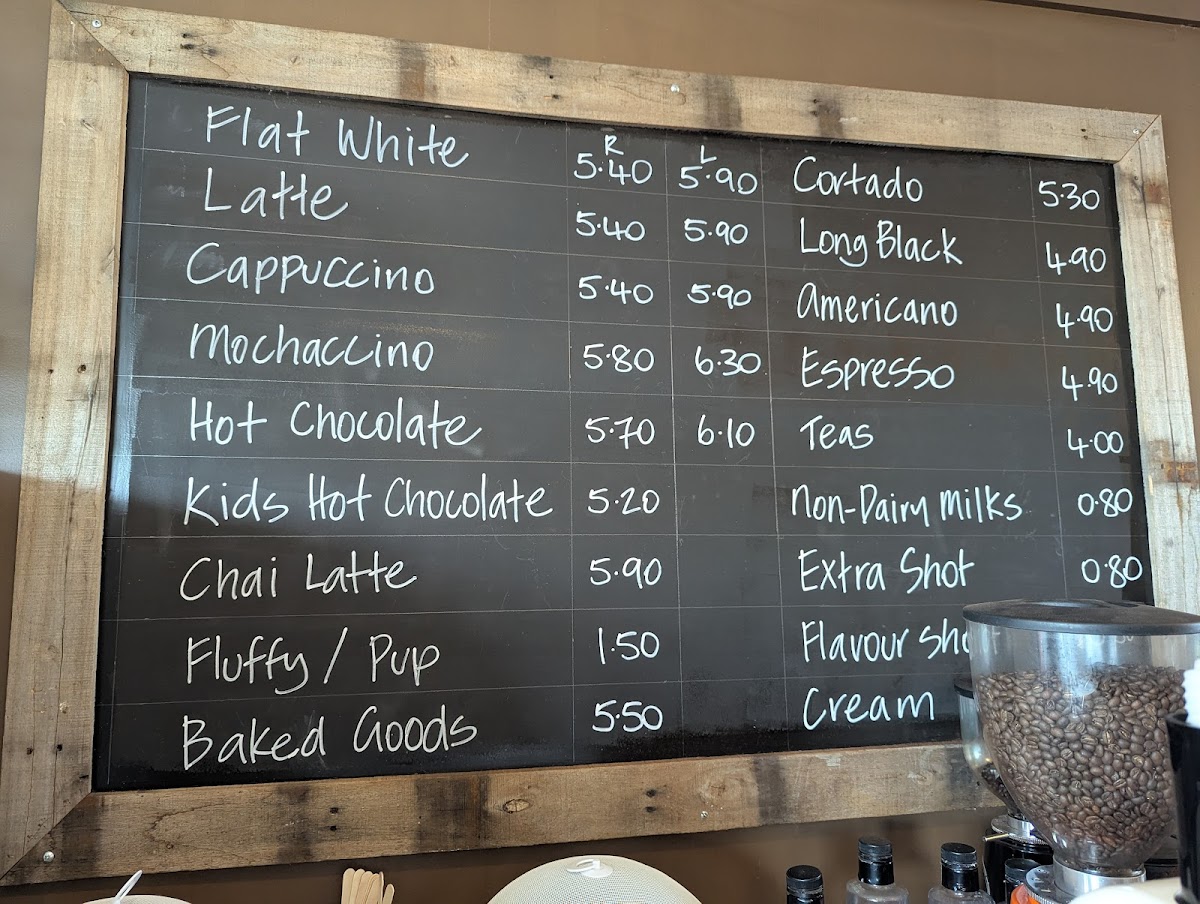 R L
Flat White 5.40 5.90
Latte 5.40 5.90
Cappuccino 5.40 5.90
Mochaccino 5.80 6.30
Hot Chocolate 5.70 6.10
Kids Hot Chocolate 5.20
Chai Latte 5.90
Fluffy / Pup 1.50
Baked Goods 5.50
Cortado 5.30
Long Black 4.90
Americano 4.90
Espresso 4.90
Teas 4.00
Non-Dairy Milks 0.80
Extra Shot 0.80
Flavour
Cream